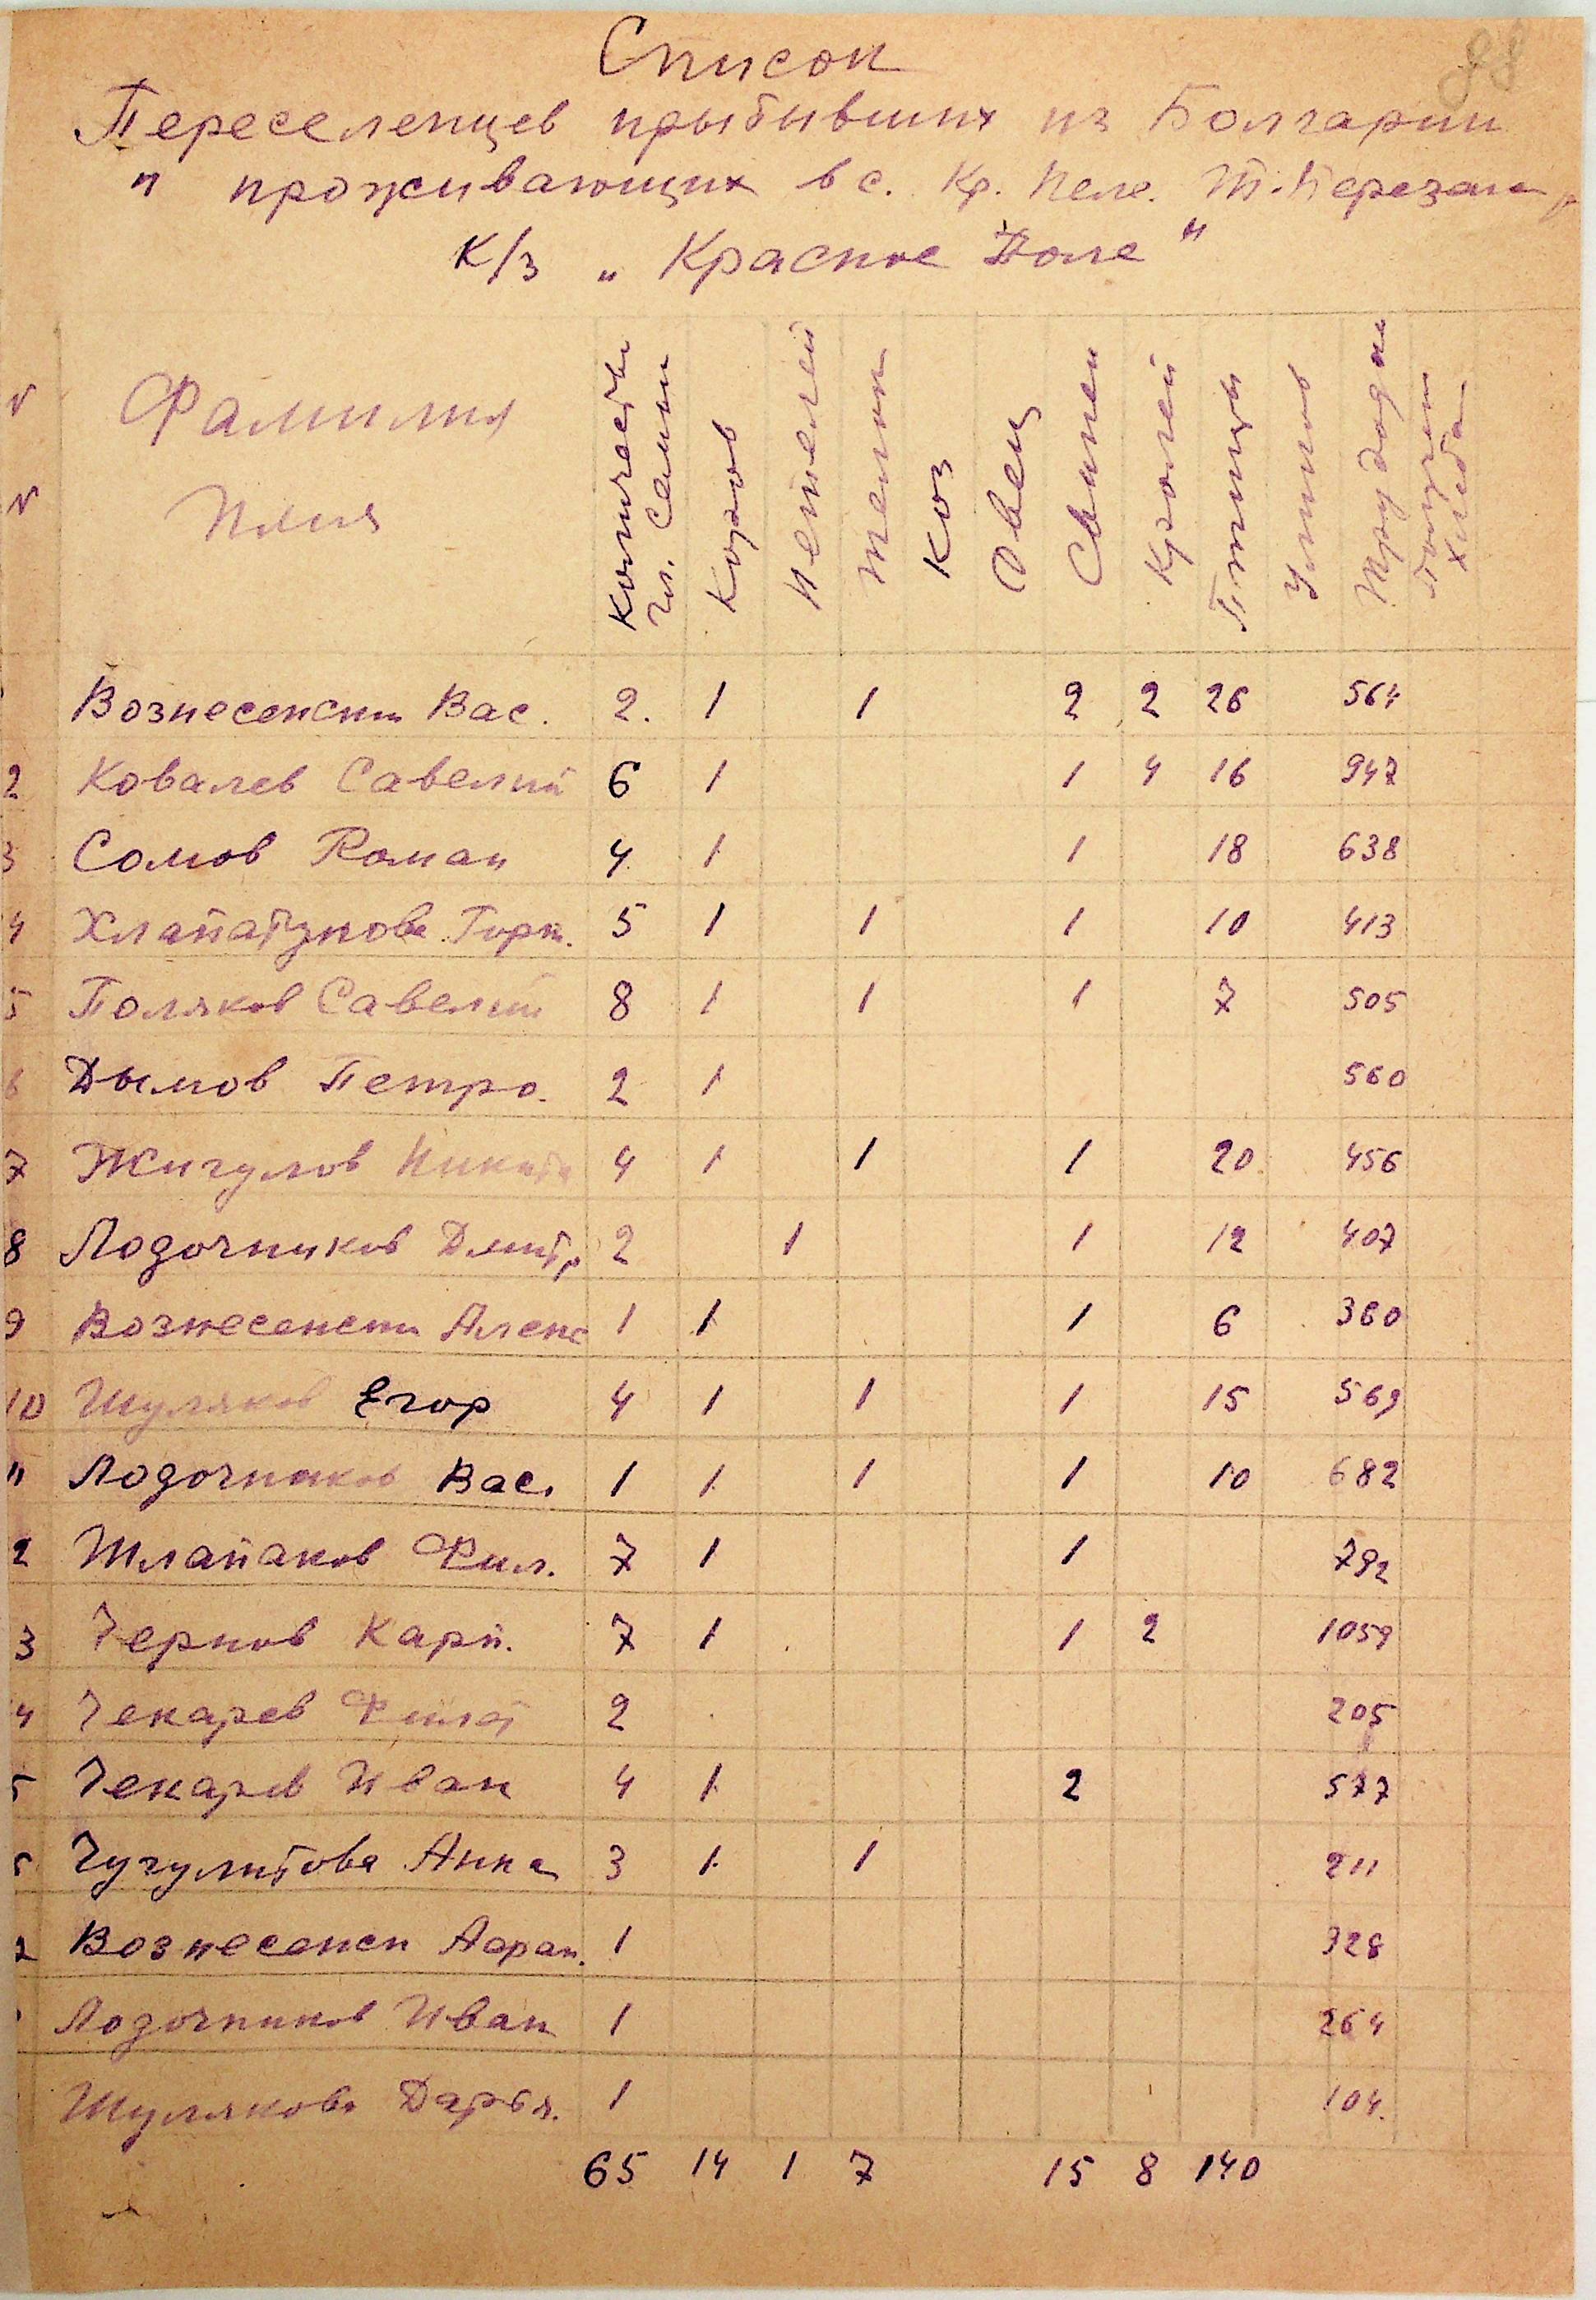 88
Список
Переселенцев прыбывших из Болгарии
" проживающих в с. Кр. Поле. Т.-Березан
К/з „ Красное Поле "
N N Фамилия Имя Количество чл. семьи Коров Нетелей Телок Коз Овец Свиней Кролей Птицы Ульиов Трудодни Получен хлеба
Вознесенски Вас. 2. 1 1 2 2 26 564
2 Ковалев Савелий 6 1 1 4 16 947
3 Сомов Роман 4 1 1 18 638
4 5 1 1 1 10 413
5 Поляков Савелий 8 1 1 1 7 505
6 Дымов Петро. 2 1 560
7 Жигулов Никита 4 1 1 1 20 456
8 Лодочников Дмитр 2 1 1 12 407
9 Вознесенски Алекс 1 1 1 6 360
10 Шуляков Егор 4 1 1 1 15 569
11 Лодочников Вас. 1 1 1 1 10 682
2 Шлапаков Фил. 7 1 1 792
3 Чернов Карп. 7 1 1 2 1059
4 Чекарев Филат 2 205
5 Чекарев Иван 4 1 2 577
Чугулитова Анна 3 1 1 211
Вознесенск 1 328
Лодочников Иван 1 264
Шулякова Дарья. 1 104.
65 14 1 7 15 8 140